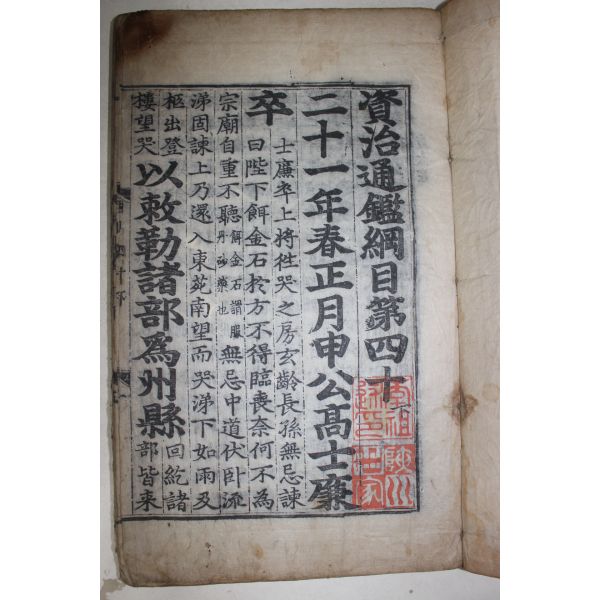 資治通鑑綱目第四十下
二十一年春正月申公髙士廉
卒
士廉卒上將徃哭之房玄齡長孫無忌諫
曰陛下餌金石於方不得臨喪奈何不為
宗廟自重不聽餌金石謂服丹砂藥也無忌中道伏卧流
涕固諫上乃還入東苑南望而哭涕下如雨及
柩出登
樓望哭
以敕勒諸部爲州縣
回紇諸
部皆来